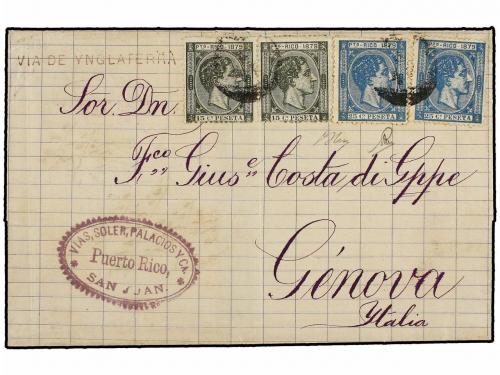 VIA DE YNGLATERRA
PTO-RICO 1879
15 Cs PESETA
PTO-RICO 1879
15 Cs PESETA
PTO-RICO 1879
25 Cs PESETA
PTO-RICO 1879
25 Cs PESETA
Sor. Dn.
Fco Giuse. Costa di Gppe
VIAS, SOLER, PALACIOS Y CA.
Puerto Rico,
SAN JUAN.
Génova
Italia